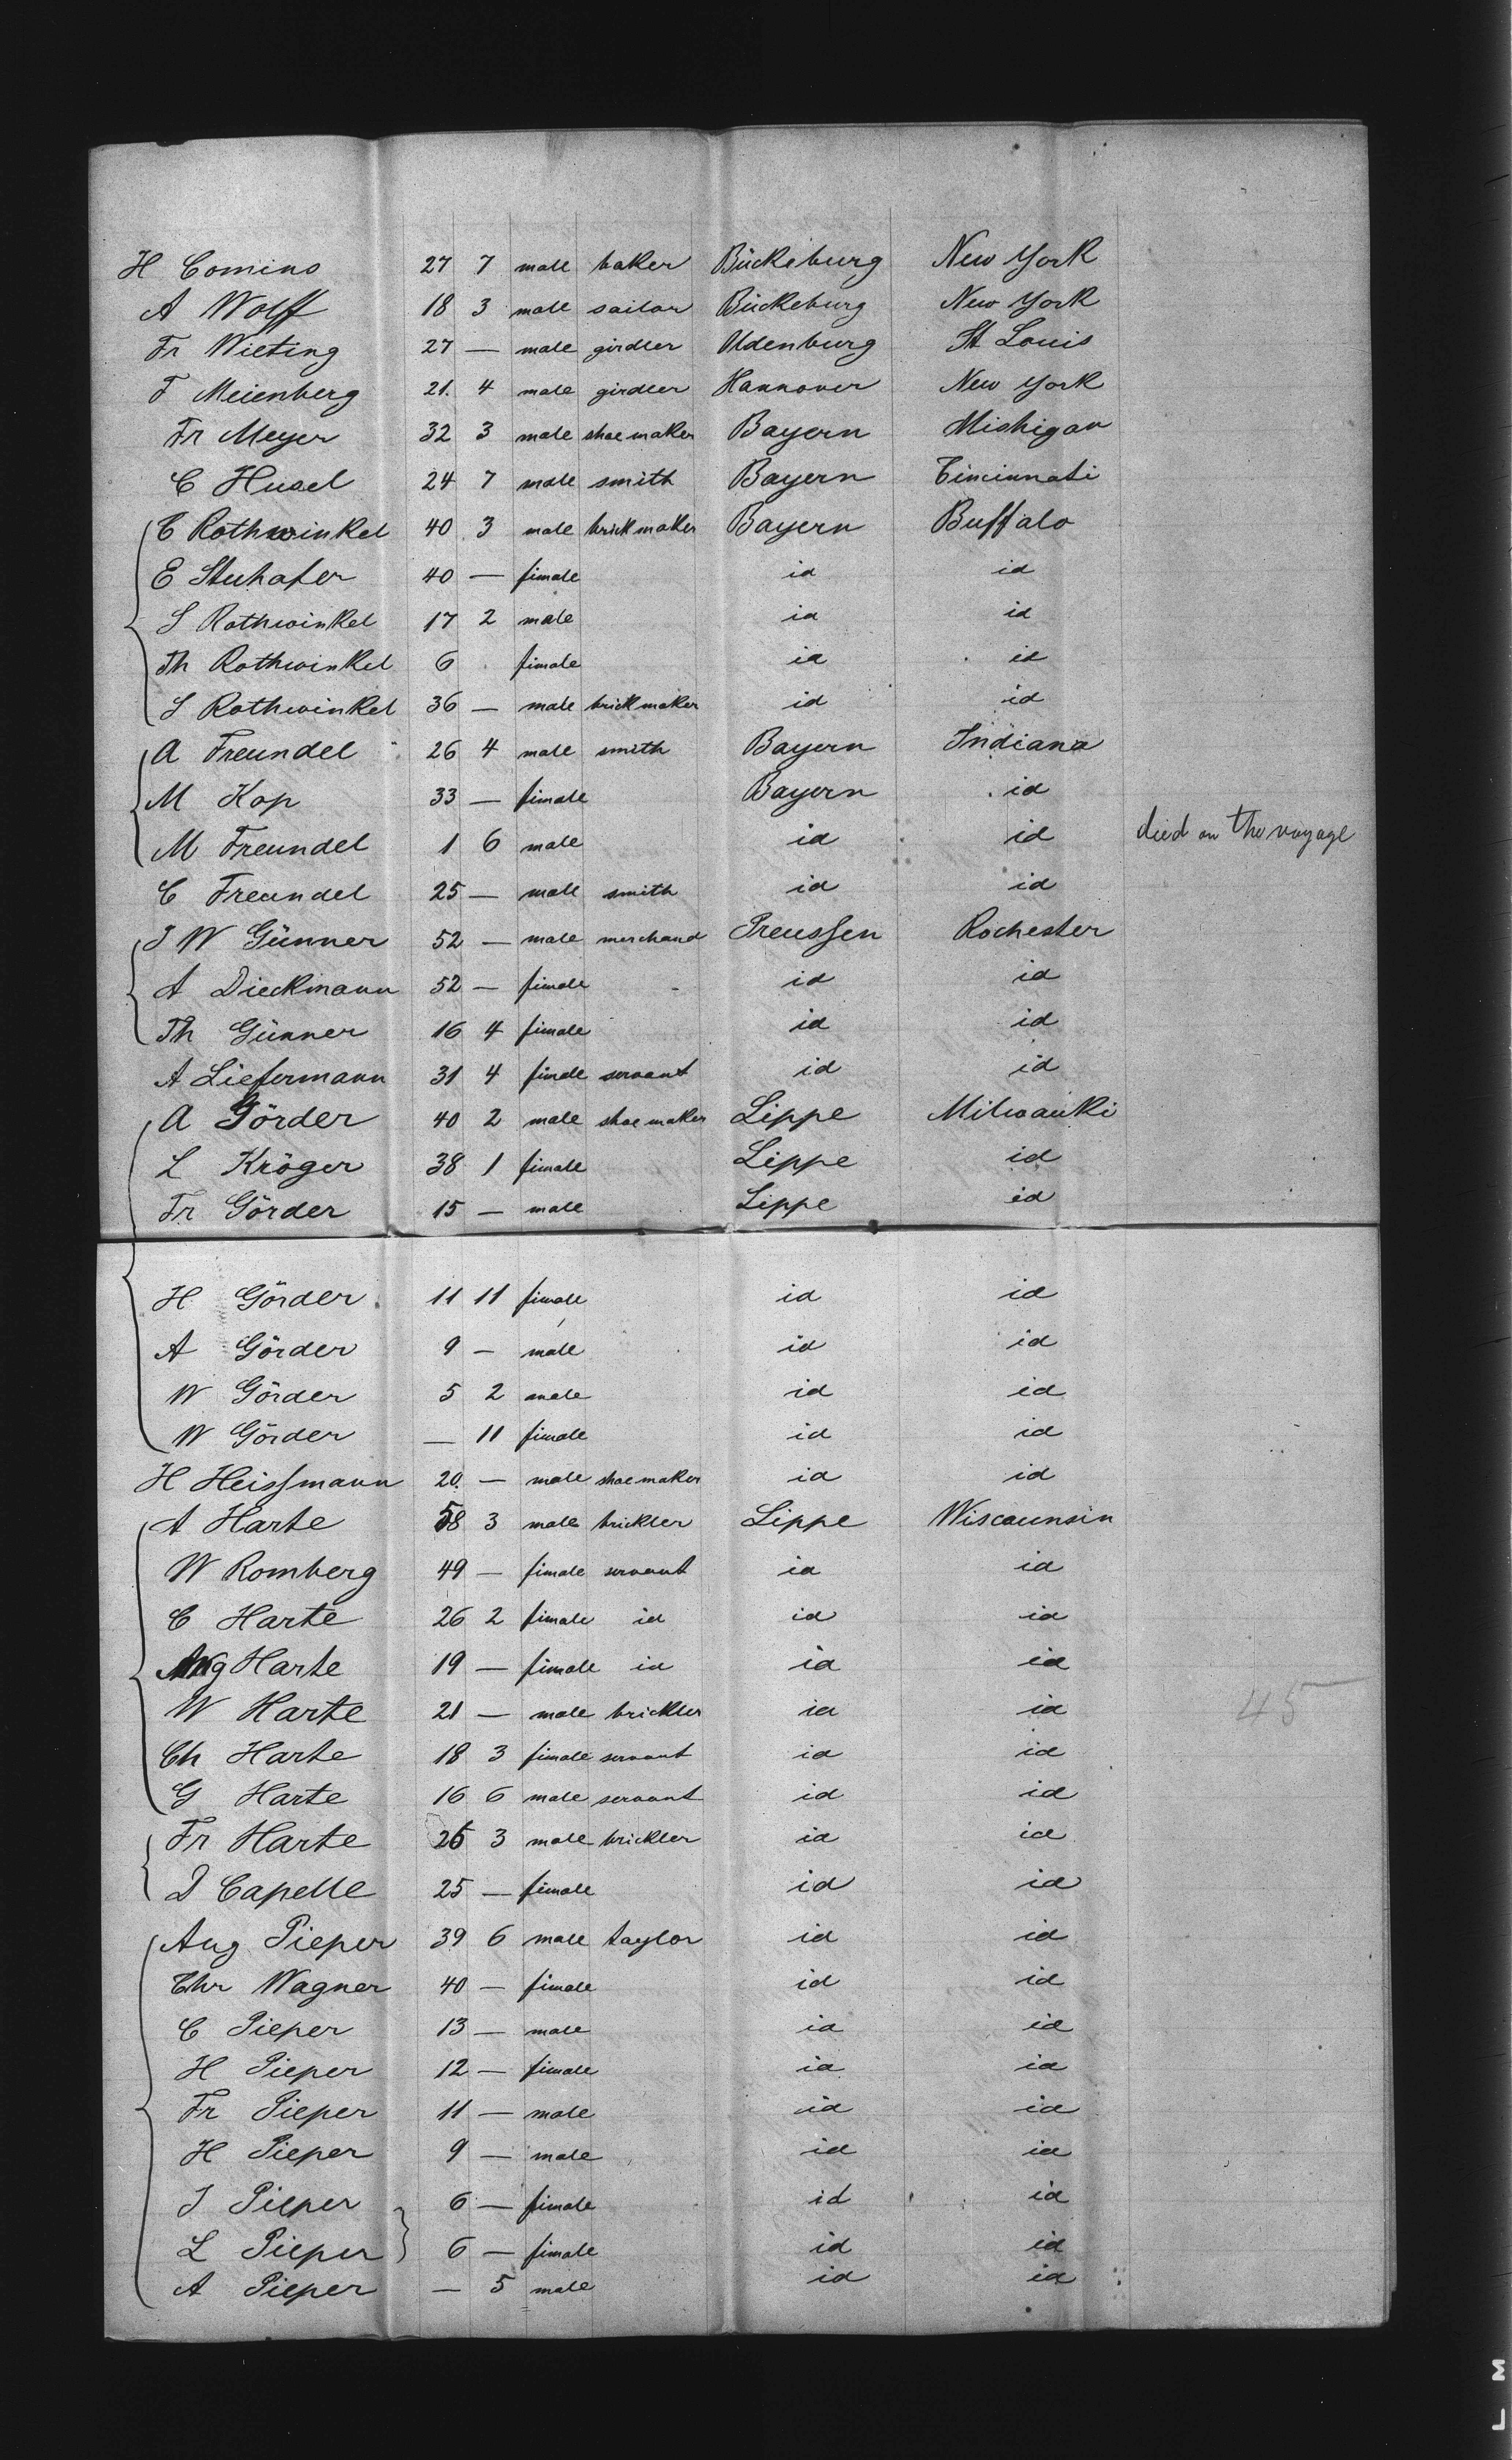 H Comino 27 7 male baker Bückeburg New York
A Wolff 18 3 male sailor Bückeburg New York
Fr Wieting 27 — male girdler Oldenburg St Louis
F Meienberg 21. 4 male girdler Hannover New York
Fr Meyer 32 3 male shoemaker Bayern Mishigan
C Husel 24 7 male smith Bayern Cincinnati
C Rothwinkel 40 3 male brickmaker Bayern Buffalo
E Stuhafer 40 — fimale id id
S Rothwinkel 17 2 male id id
Th Rothwinkel 6 fimale id id
S Rothwinkel 36 — male brickmaker id id
A Freundel 26 4 male smith Bayern Indiana
M Kop 33 — fimale Bayern id
M Freundel 1 6 male id id died on the voyage
C Freundel 25 — male smith id id
J W Günner 52 — male merchand Preussen Rochester
A Dieckmann 52 — fimale id id
Th Günner 16 4 fimale id id
A Liefermann 31 4 fimale servant id id
A Görder 40 2 male shoemaker Lippe Milwauki
L Kröger 38 1 fimale Lippe id
Fr Görder 15 — male Lippe id
H Görder 11 11 fimale id id
A Görder 9 — male id id
W Görder 5 2 male id id
W Görder — 11 fimale id id
H Heissmann 20. — male shoemaker id id
A Harte 58 3 male brickler Lippe Wiscounsin
W Romberg 49 — fimale servant id id
C Harte 26 2 fimale id id id
Aug Harte 19 — fimale id id id
W Harte 21 — male brickler id id
45
Ch Harte 18 3 fimale servant id id
G Harte 16 6 male servant id id
Fr Harte 3 male brickler id id
D Capelle 25 — fimale id id
Aug Pieper 39 6 male taylor id id
Chr Wagner 40 — fimale id id
C Pieper 13 — male id id
H Pieper 12 — fimale id id
Fr Pieper 11 — male id id
H Pieper 9 — male id id
J Pieper 6 — fimale id id
L Pieper 6 — fimale id id
A Pieper — 5 male id id
L M